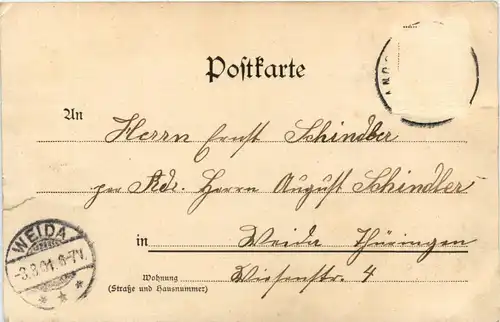 Postkarte
An Herrn Ernst Schindler
per Adr. Herrn August Schindler
in Weida Thüringen
Wohnung Wiesenstr. 4
(Straße und Hausnummer)
WEIDA
-3.8.01. 6-7V.